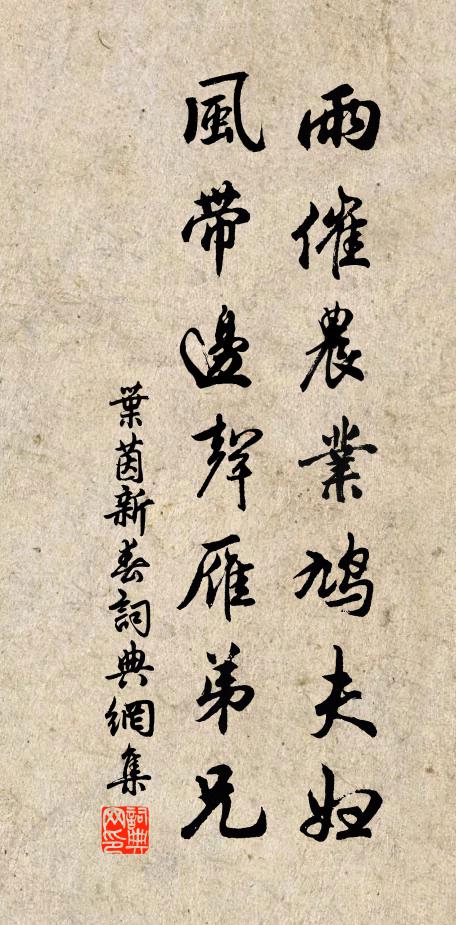 雨催農業鳩夫婦
風帶邊聲雁弟兄
葉茵新春詞典網集
詞典網印